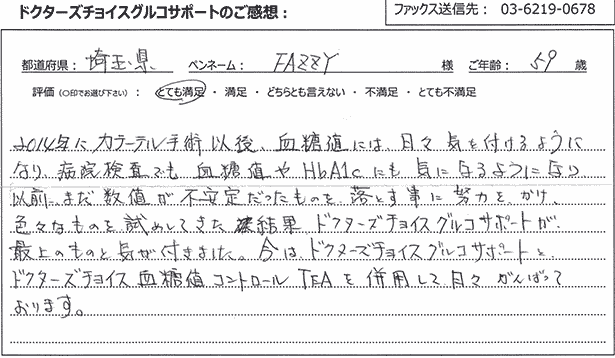 ドクターズチョイスグルコサポートのご感想：
ファックス送信先： 03-6219-0678
都道府県： 埼玉県 ペンネーム： FAZZY 様 ご年齢： 59 歳
評価（○印でお選び下さい）： とても満足 ・ 満足 ・ どちらとも言えない ・ 不満足 ・ とても不満足
2014年に カテーテル手術以後、血糖値には、日々気を付けるように
なり、病院検査でも 血糖値や HbA1cにも 気になるようになり
以前、まだ数値が不安定だったものを 落とす事に努力をかけ、
色々なものを試めしてきた 結果 ドクターズチョイスグルコサポートが、
最上のものと気が付きました。今は、ドクターズチョイスグルコサポートと
ドクターズチョイス 血糖値コントロールTEAを併用して日々がんばって
おります。